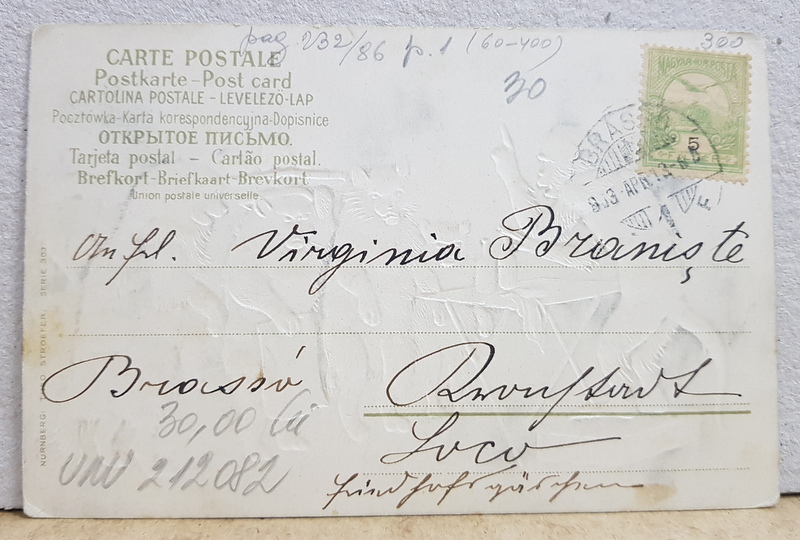 pag 232/86 p.1 (60-400)
300
30
CARTE POSTALE
Postkarte - Post card
CARTOLINA POSTALE - LEVELEZŐ-LAP
Pocztówka - Karta korespondencyjna - Dopisnice
ОТКРЫТОЕ ПИСЬМО.
Tarjeta postal - Cartão postal.
Brefkort - Briefkaart - Brevkort
Union postale universelle
MAGYAR KIR POSTA
5
BRASSÓ
903 APR
An Frl. Virginia Braniște
Brassó Kronstadt
30,00 lei
Loco
UNV 212082
Friedhofsgäschen
NÜRNBERG- THEO. STROEFER, SERIE 307.